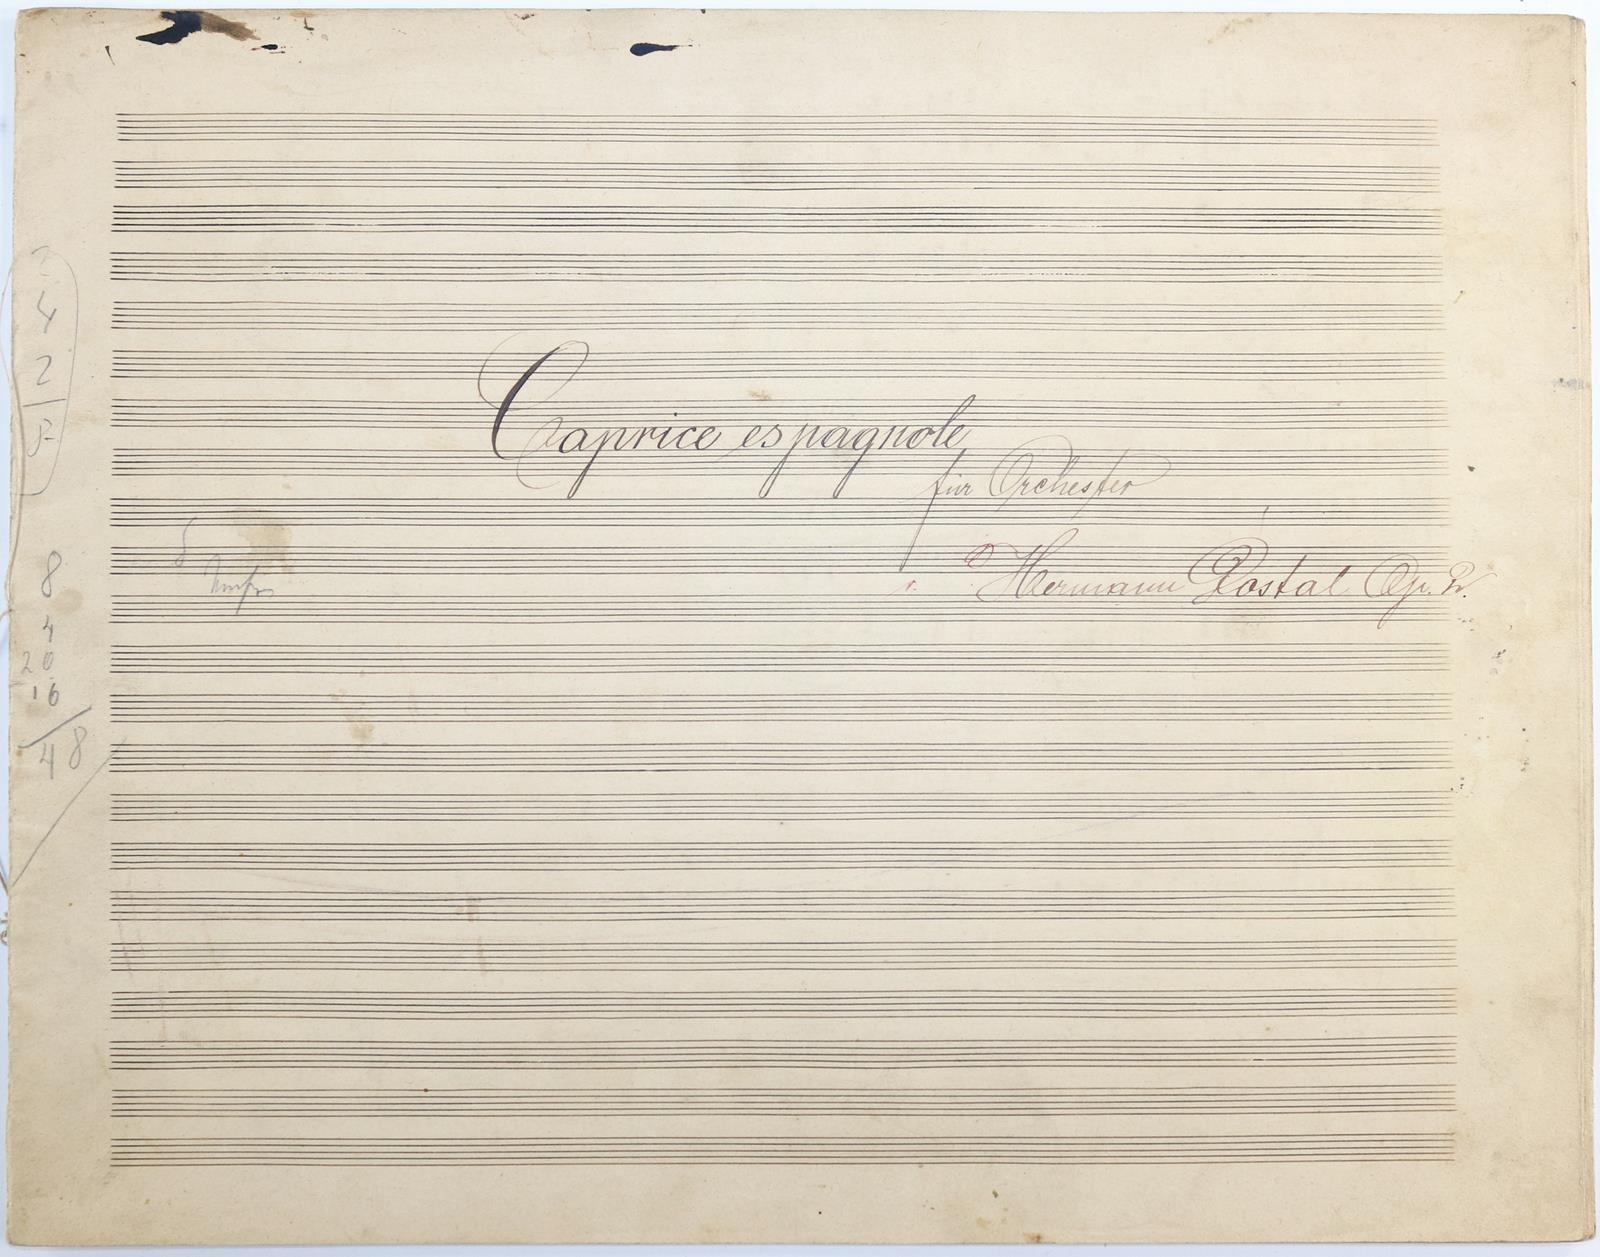 Caprice espagnole
für Orchester
v. Hermann Postal Op. 2.
4
2
8
4
20
16
48